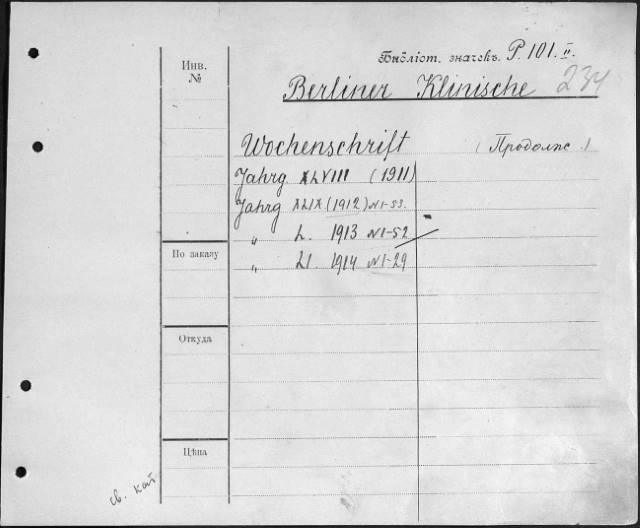 Библіот. значекъ P. 101. II.
Инв.
№
Berliner Klinische 234
Wochenschrift (Продолж.)
Jahrg XLVIII (1911)
Jahrg XLIX (1912) N1-53.
„ L. 1913 N1-52
По заказу
„ LI. 1914 N1-29
Откуда
Цѣна
св. кат